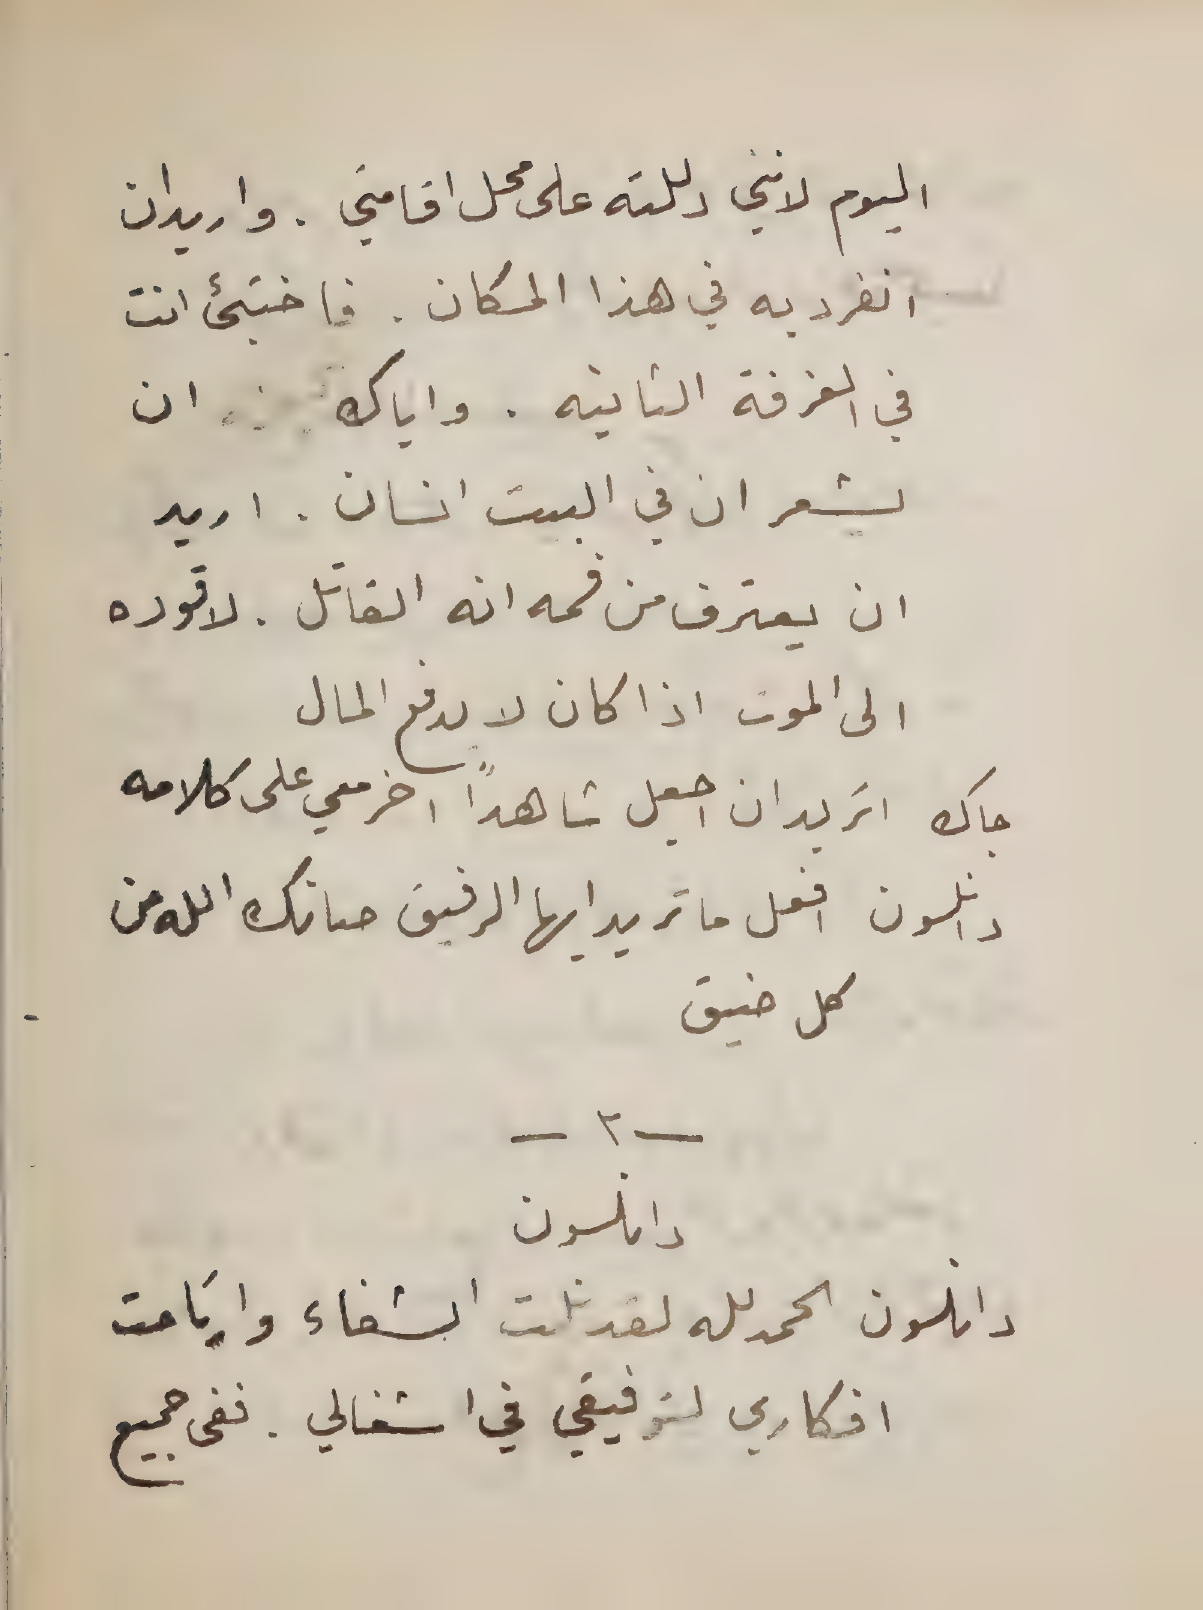 اليوم لانني دللته على محل اقامتي . واريدان
انفرد به في هذا المكان . فاختبئ انت
في الغرفة الثانيه . واياك ان
يشعر ان في البيت انسان . اريد
ان يعترف من فمه انه القاتل . لاقوده
الى الموت اذا كان لا يدفع المال
جاك اتريد ان اجعل شاهداً اخر معي على كلامه
دانلسون افعل ما تريد ايها الرفيق صانك الله من
كل ضيق
— ٢ —
دانلسون
دانلسون الحمد لله لقد نلت الشفاء وارتاحت
افكاري لتوفيقي في اشغالي . ففى جميع